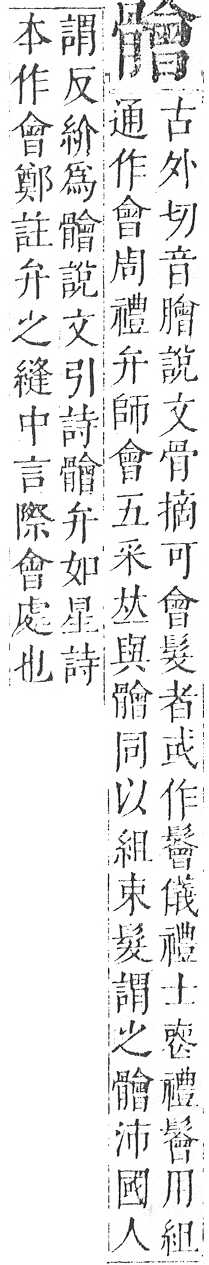 䯤
古外切音膾說文骨擿可會髮者或作鬠儀禮士喪禮鬠用組
通作會周禮弁師會五采㘸與䯤同以組束髮謂之䯤沛國人
謂反紒爲䯤說文引詩䯤弁如星詩
本作會鄭註弁之縫中言際會處也